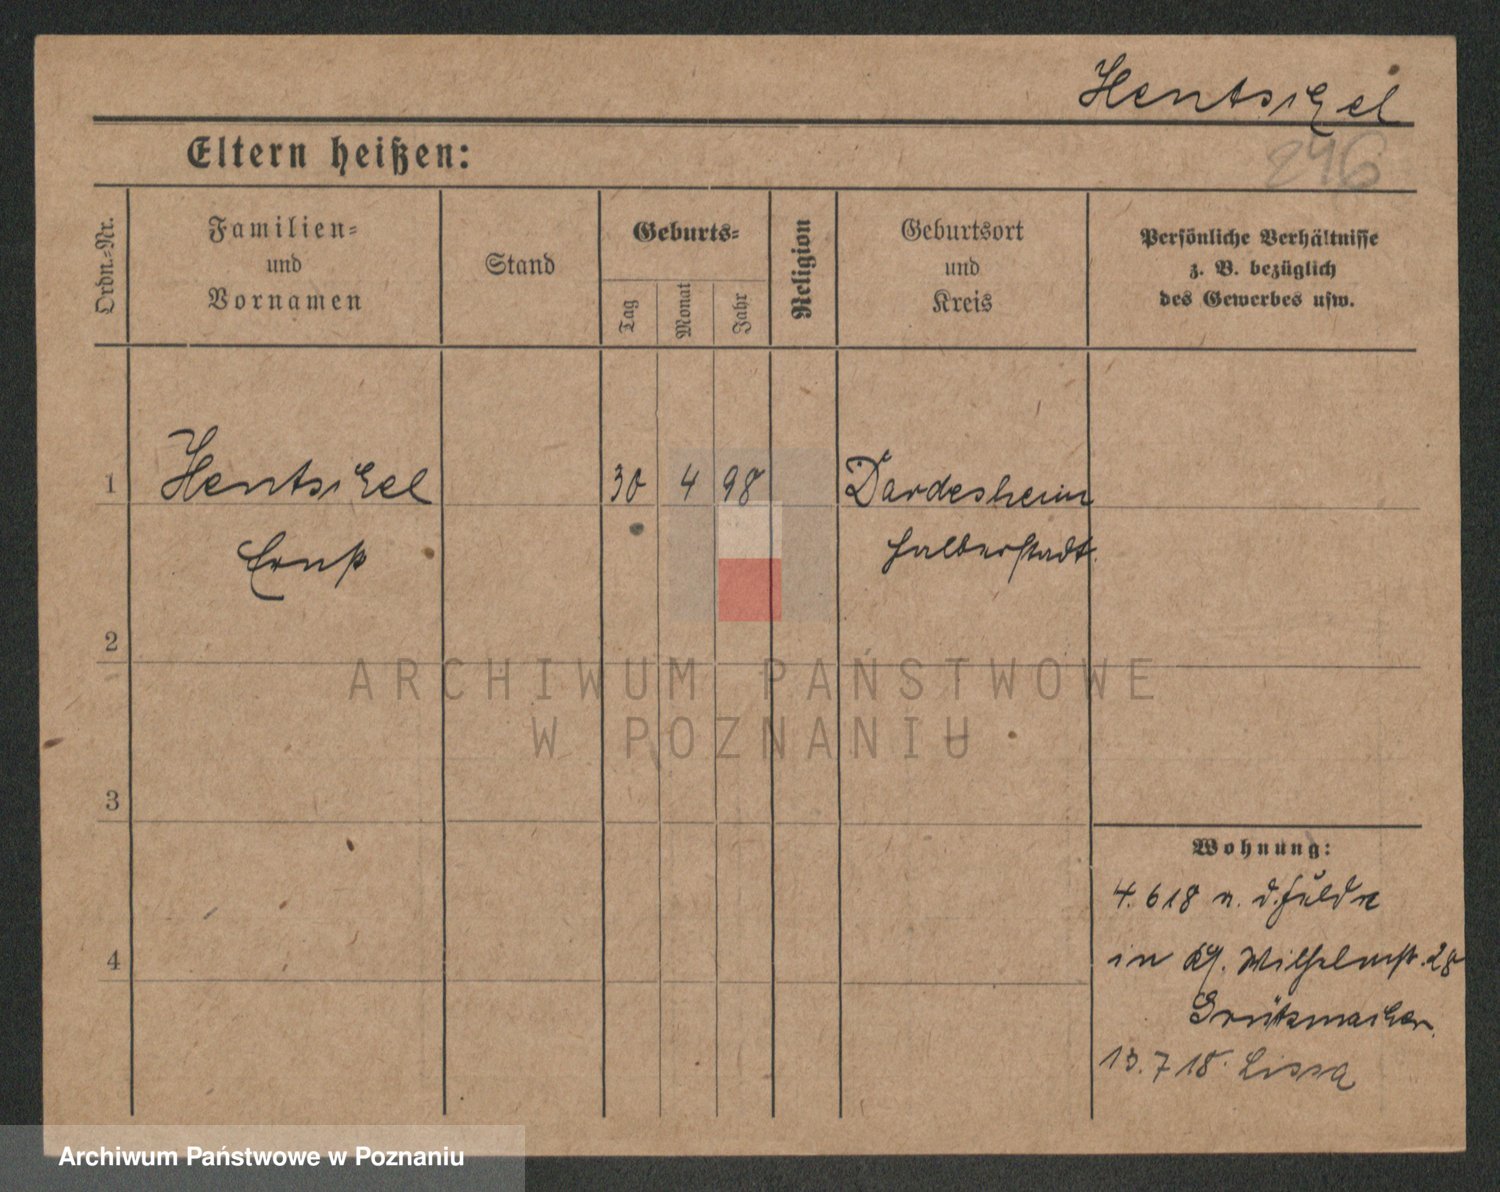 Hentschel
246
Eltern heißen:
Ordn.-Nr.
Familien-
und
Vornamen
Stand
Geburts-
Tag
Monat
Jahr
Religion
Geburtsort
und
Kreis
Persönliche Verhältnisse
z. B. bezüglich
des Gewerbes usw.
1 Hentschel 30 4 98 Dardesheim
Ernst Halberstadt.
2
3
4
Wohnung:
4. 6 18 n. d. Fulda
in Wilhelmstr. 28
Grützmacher.
13. 7 18. Lissa
ARCHIWUM PAŃSTWOWE
W POZNANIU
Archiwum Państwowe w Poznaniu